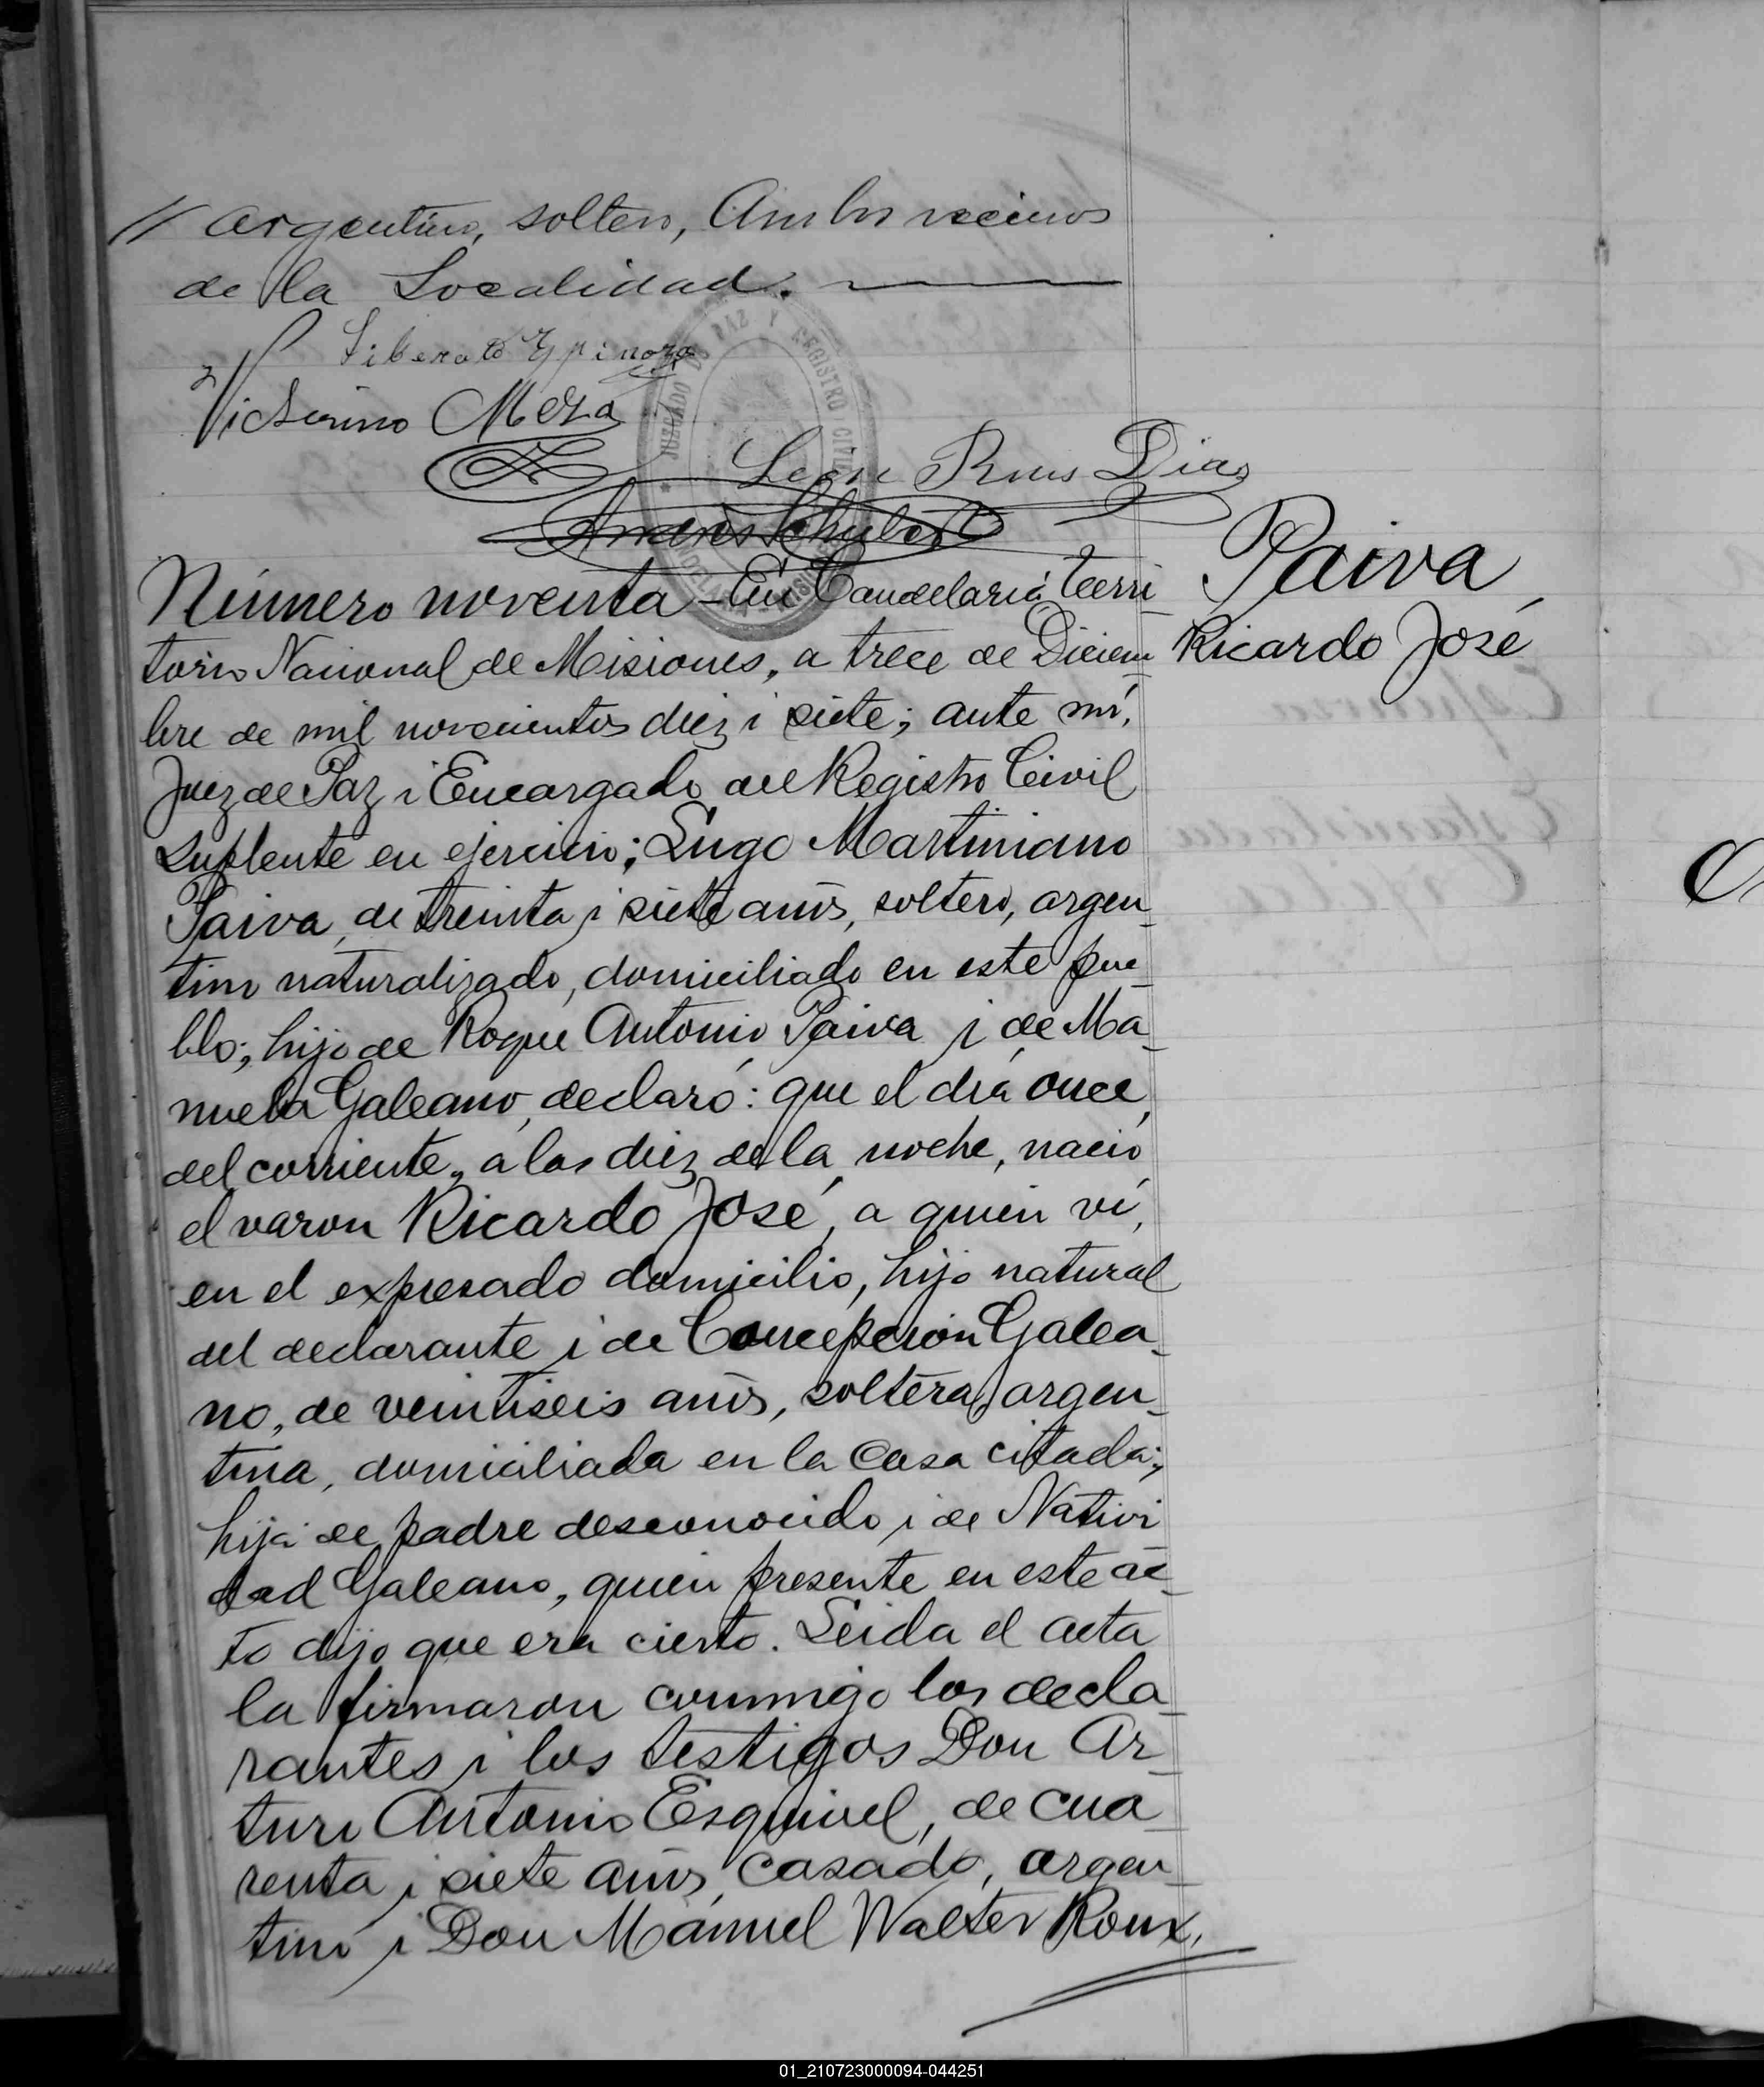 // argentino, soltero, Ambos vecinos
de la Localidad.
Liberato Espinoza
Victorino Meza
JUZGADO DE PAZ Y REGISTRO CIVIL
León Díaz
Andrés Schubert
Número noventa - En Candelaria, Terri
torio Nacional de Misiones, a trece de Diciem
bre de mil novecientos diez i siete; ante mí,
Juez de Paz i Encargado del Registro Civil
suplente en ejercicio; Lugo Martiniano
Paiva, de treinta i siete años, soltero, argen-
tino naturalizado, domiciliado en este pue-
blo; hijo de Roque Antonio Paiva i de Ma-
nuela Galeano, declaró: que el día once,
del corriente, a las diez de la noche, nació
el varon Ricardo José, a quien ví,
en el expresado domicilio, hijo natural
del declarante i de Concepción Galea-
no, de veintiseis años, soltera, argen-
tina, domiciliada en la casa citada;
hija de padre desconocido i de Nativi
dad Galeano, quien presente en este ac-
to dijo que era cierto. Leida el acta
la firmaron conmigo los decla-
rantes i los testigos Don Ar-
turo Antonio Esquivel, de cua-
renta i siete años, casado, argen-
tino i Don Manuel Walter Roux,
Paiva,
Ricardo José
01_210723000094-044251